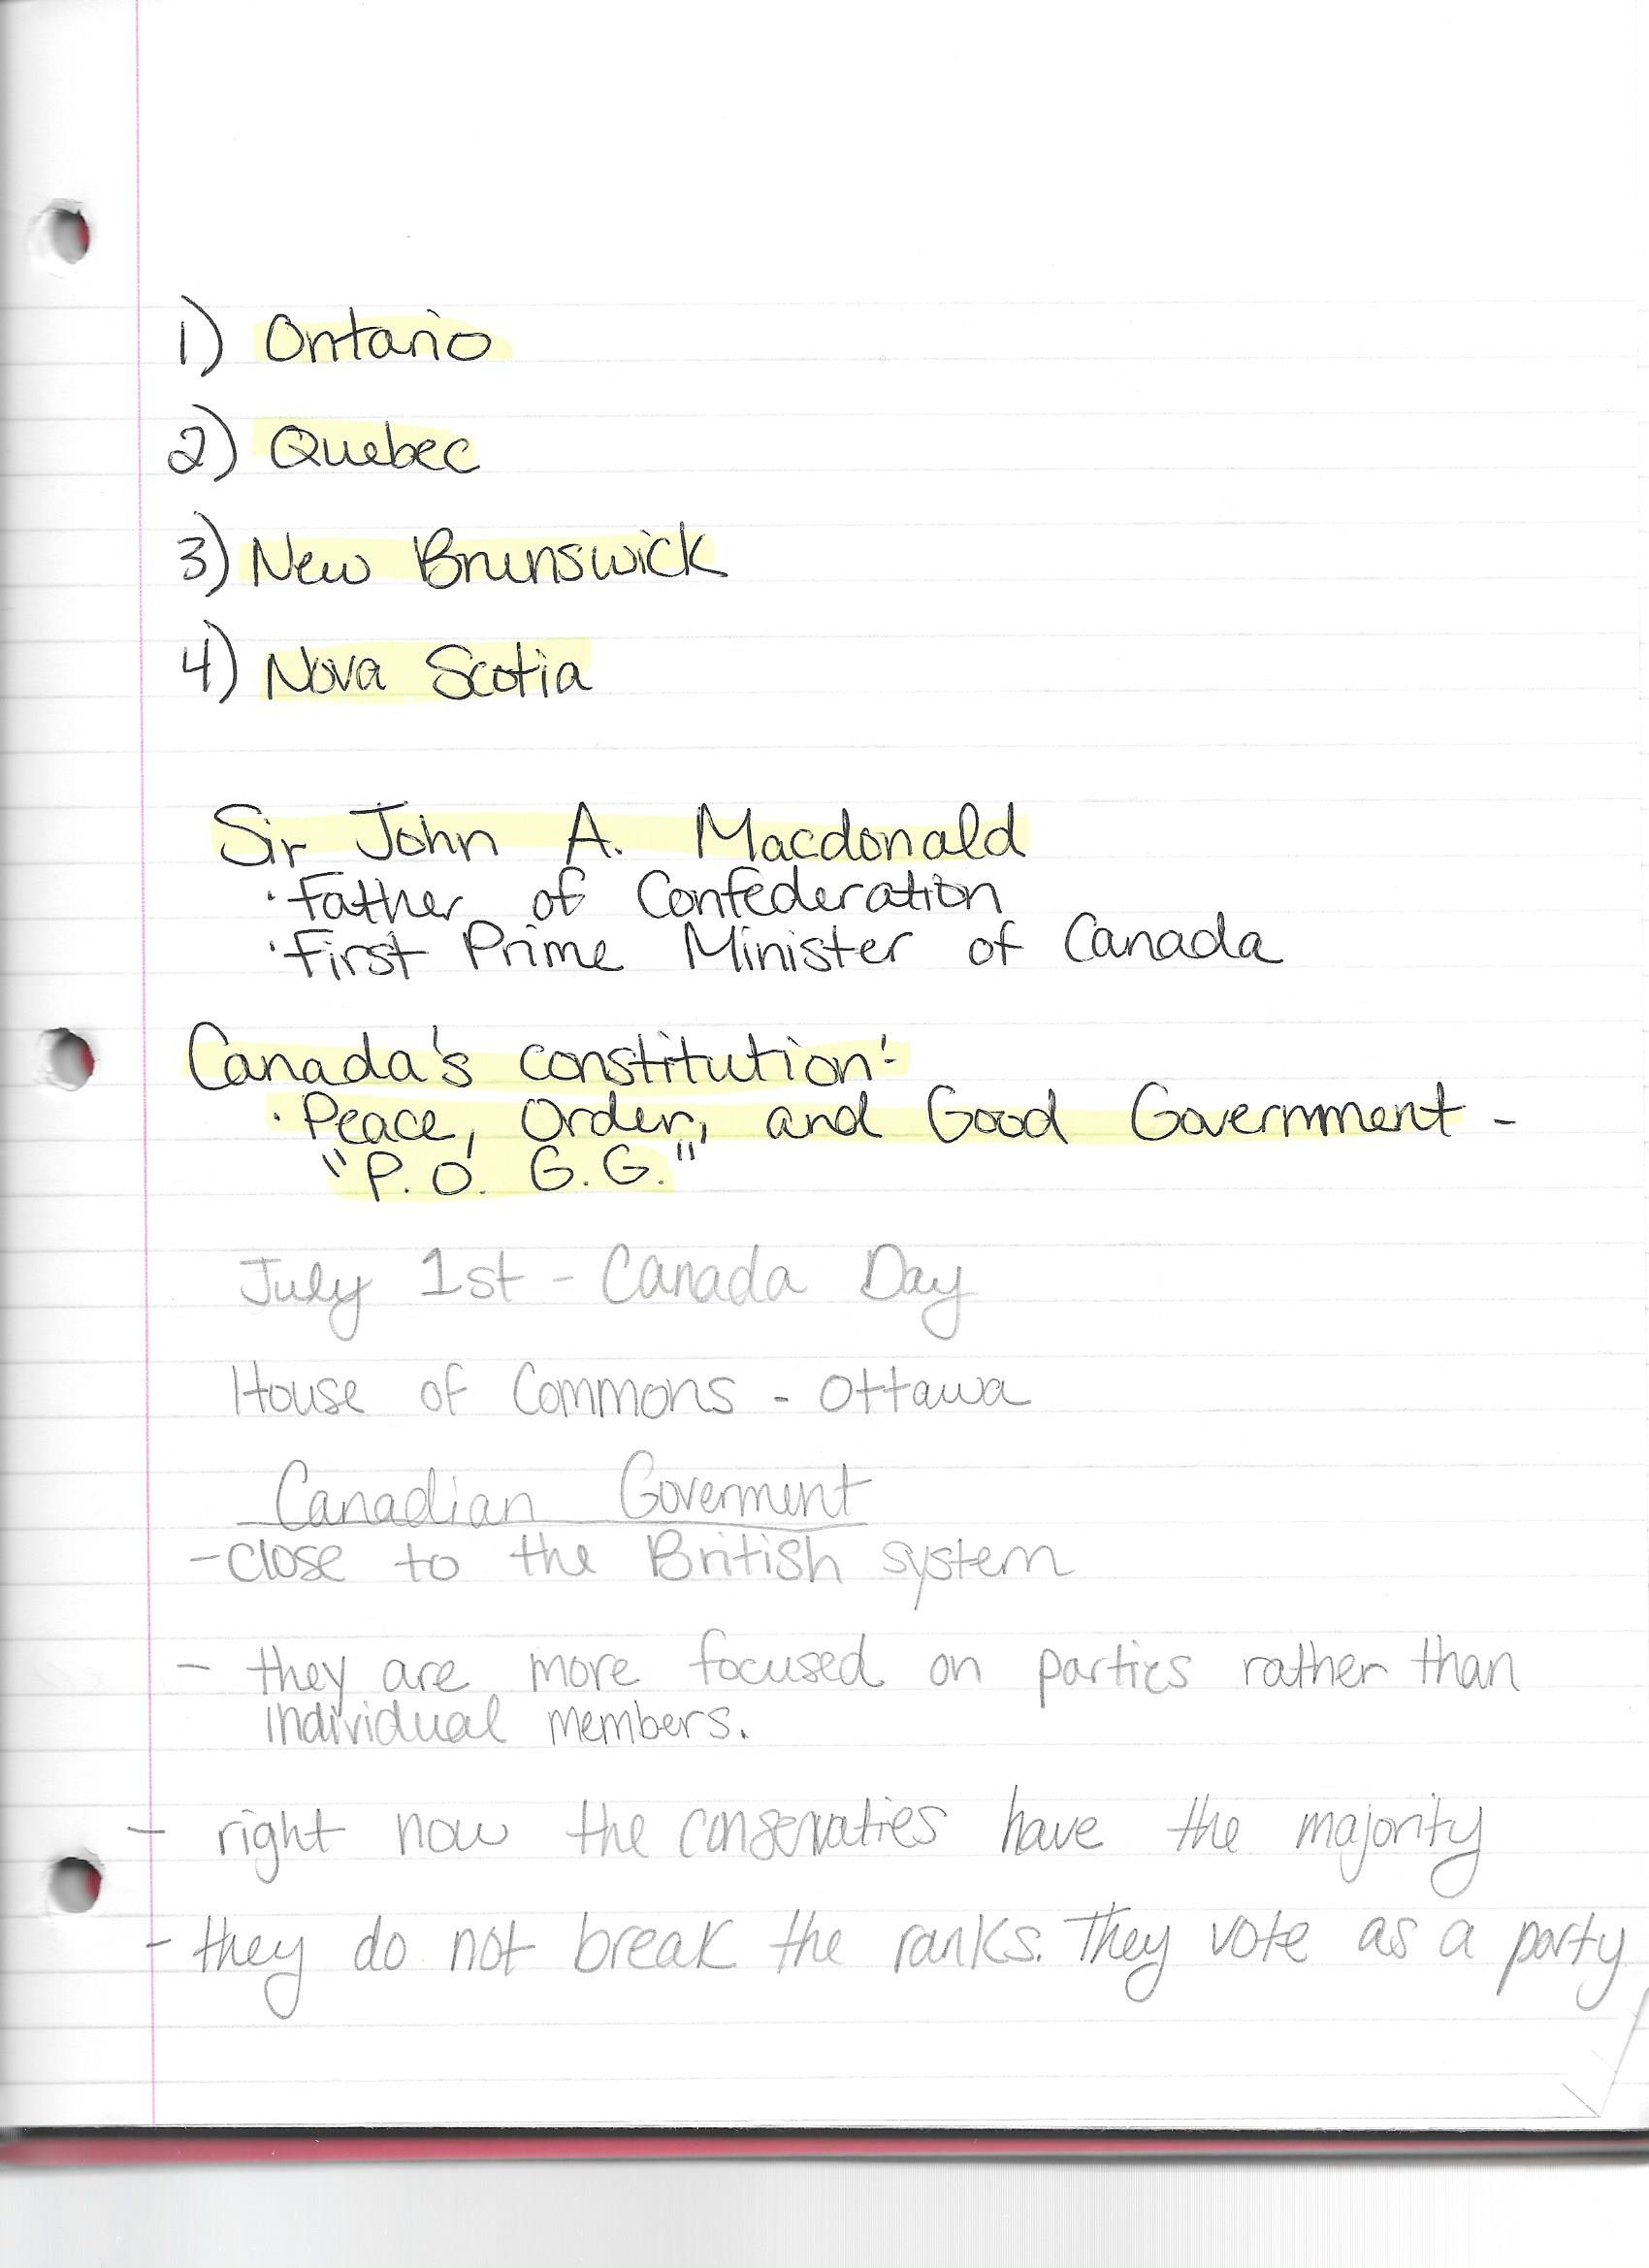 1) Ontario
2) Quebec
3) New Brunswick
4) Nova Scotia
Sir John A. Macdonald
· Father of Confederation
· First Prime Minister of Canada
Canada's constitution:-
· Peace, Order, and Good Government -
"P.O. G.G."
July 1st - Canada Day
House of Commons - Ottawa
Canadian Goverment
- close to the British system
- they are more focused on parties rather than
individual members.
- right now the conservaties have the majority
- they do not break the ranks. They vote as a party